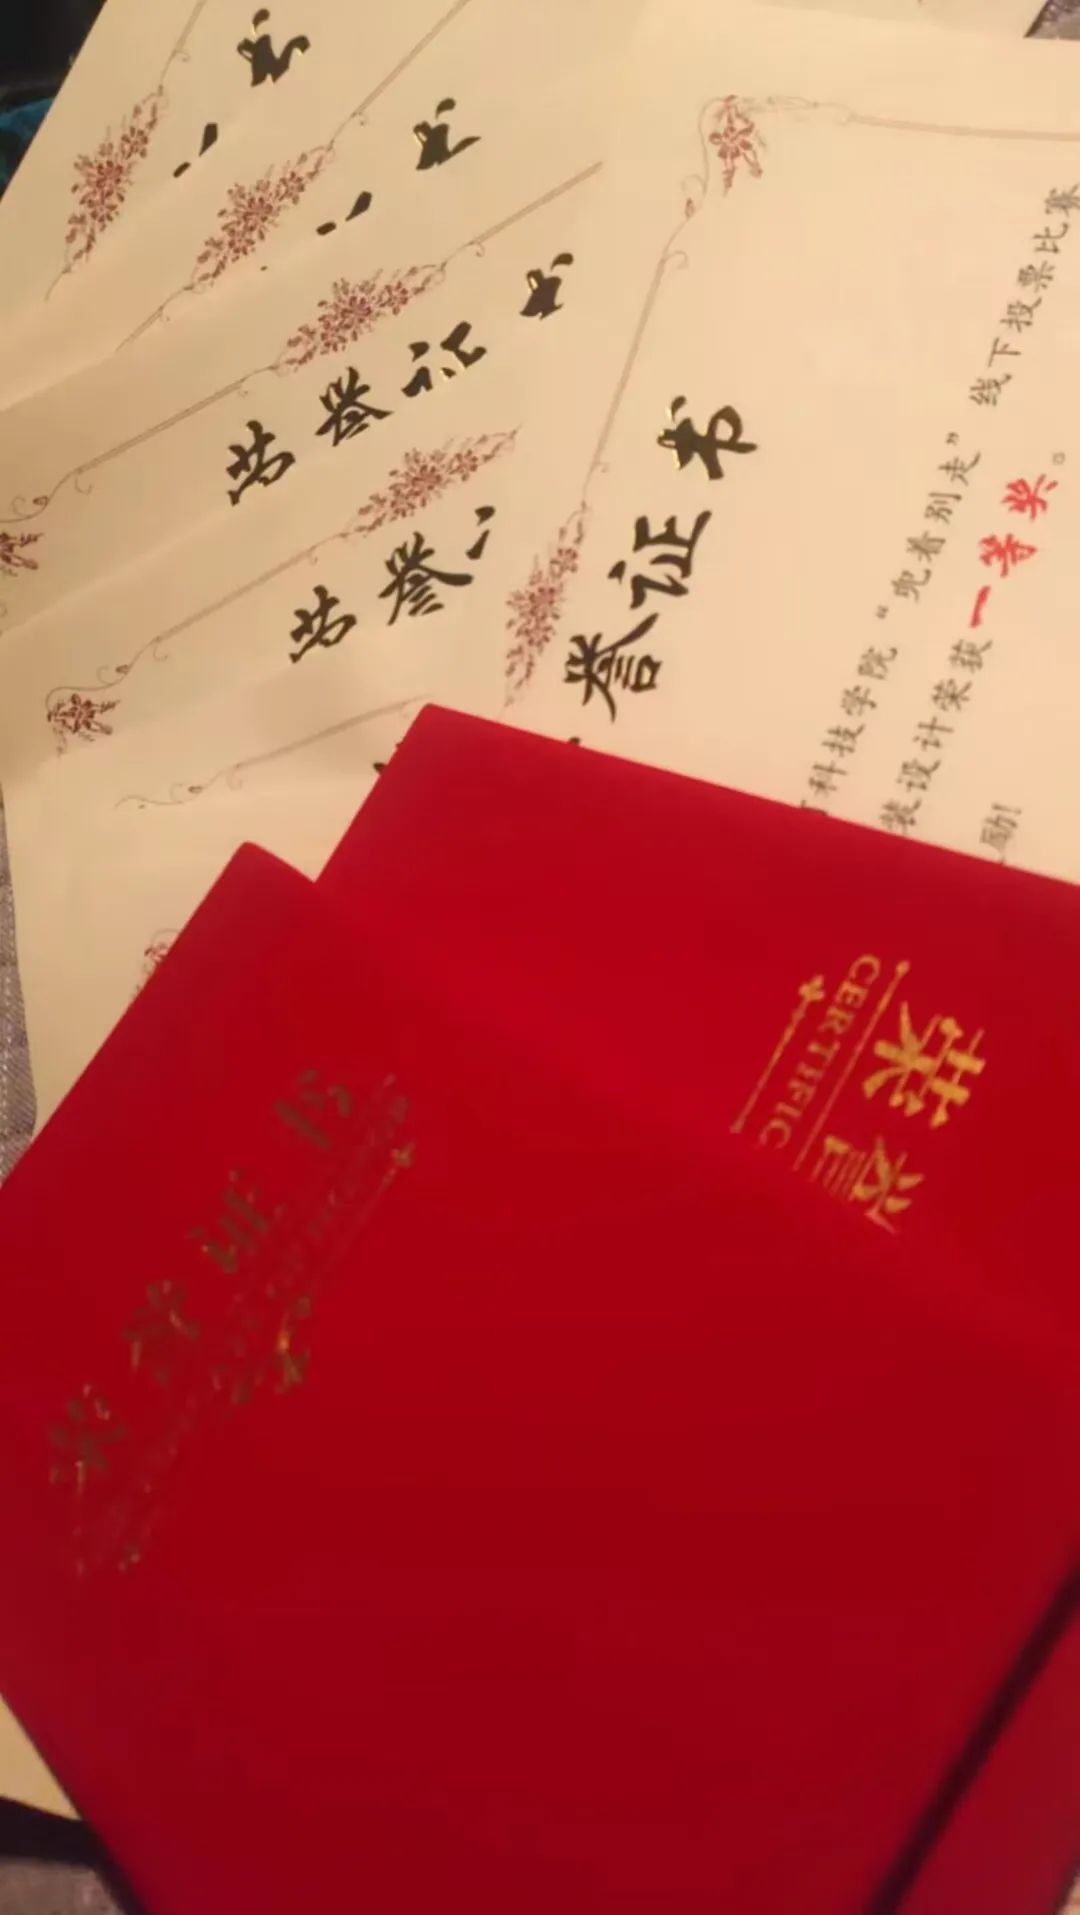 书
书
荣誉证书
荣誉
誉证书
科技学院“兜着别走”线下投票比赛
装设计荣获一等奖。
励!
荣誉
CERTIFIC
荣誉证书